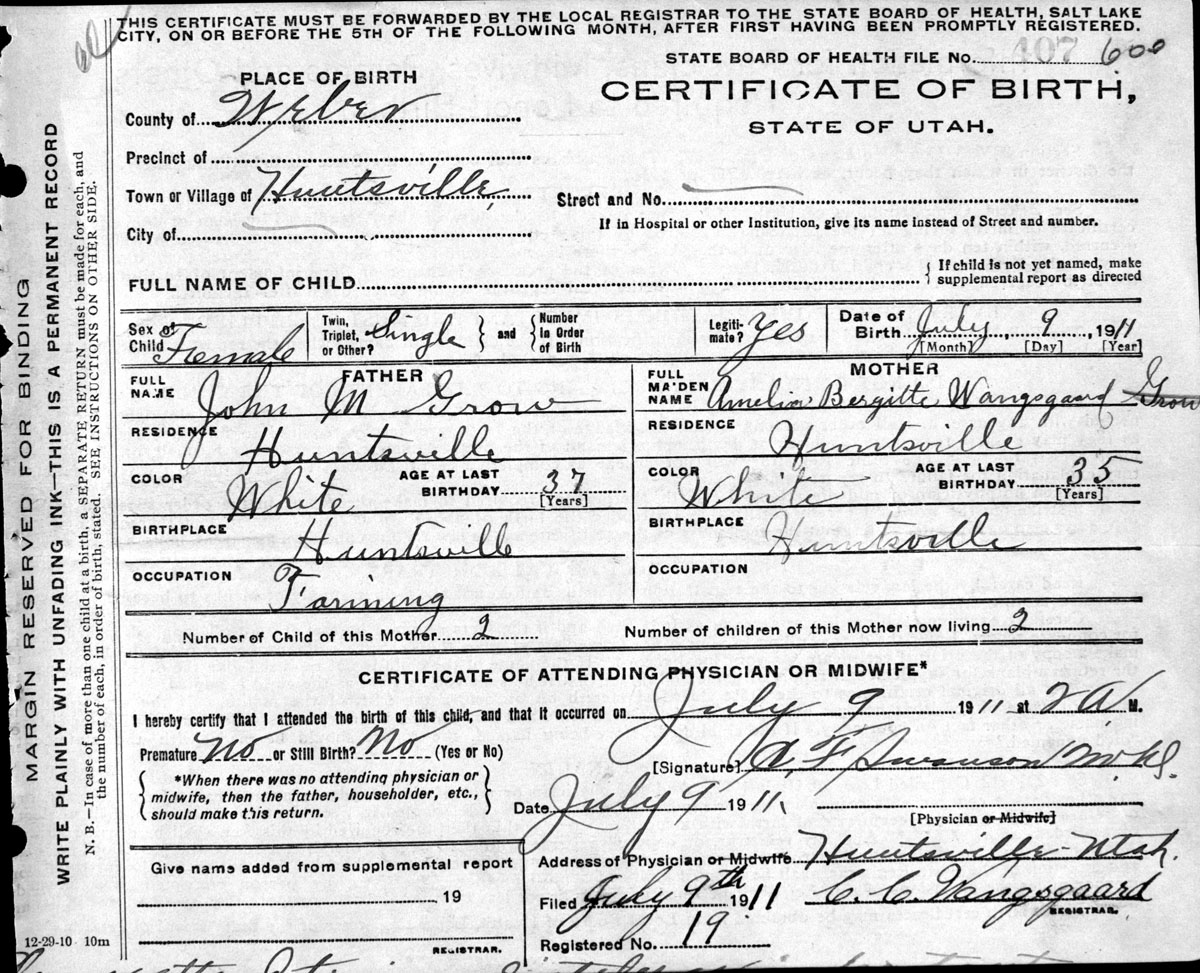 THIS CERTIFICATE MUST BE FORWARDED BY THE LOCAL REGISTRAR TO THE STATE BOARD OF HEALTH, SALT LAKE
CITY, ON OR BEFORE THE 5TH OF THE FOLLOWING MONTH, AFTER FIRST HAVING BEEN PROMPTLY REGISTERED.
STATE BOARD OF HEALTH FILE No. 407 600
PLACE OF BIRTH
CERTIFICATE OF BIRTH,
STATE OF UTAH.
County of Weber
Precinct of
Town or Village of Huntsville
Street and No.
City of
If in Hospital or other Institution, give its name instead of Street and number.
FULL NAME OF CHILD
{ If child is not yet named, make
supplemental report as directed
Sex of Child Female
Twin, Triplet, or Other? Single } and { Number in Order of Birth
Legitimate? Yes
Date of Birth July 9 1911
[Month] [Day] [Year]
FATHER
FULL NAME John M Grow
RESIDENCE Huntsville
COLOR White
AGE AT LAST BIRTHDAY 37
[Years]
BIRTHPLACE Huntsville
OCCUPATION Farming
MOTHER
FULL MAIDEN NAME Amelia Bergitte Wangsgaard Grow
RESIDENCE Huntsville
COLOR White
AGE AT LAST BIRTHDAY 35
[Years]
BIRTHPLACE Huntsville
OCCUPATION
Number of Child of this Mother 2 Number of children of this Mother now living 2
CERTIFICATE OF ATTENDING PHYSICIAN OR MIDWIFE*
I hereby certify that I attended the birth of this child, and that it occurred on July 9 1911 at 2 A M.
Premature No or Still Birth? No (Yes or No)
{ *When there was no attending physician or
midwife, then the father, householder, etc.,
should make this return. }
[Signature] A. F. Swanson M.D.
Date July 9 1911
[Physician or Midwife]
Give name added from supplemental report
19
REGISTRAR.
Address of Physician or Midwife Huntsville Utah.
Filed July 9th 1911 C. C. Wangsgaard
REGISTRAR.
Registered No. 19
12-29-10 10m
MARGIN RESERVED FOR BINDING
WRITE PLAINLY WITH UNFADING INK—THIS IS A PERMANENT RECORD
N. B.—In case of more than one child at a birth, a SEPARATE RETURN must be made for each, and
the number of each, in order of birth, stated. SEE INSTRUCTIONS ON OTHER SIDE.